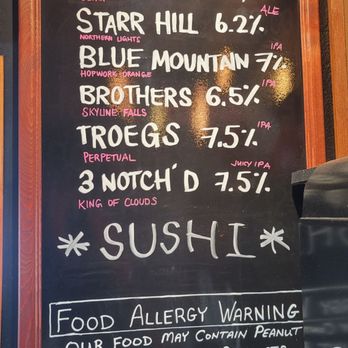 ALE
STARR HILL 6.2%
NORTHERN LIGHTS
IPA
BLUE MOUNTAIN 7%
HOPWORK ORANGE
IPA
BROTHERS 6.5%
SKYLINE FALLS
IPA
TROEGS 7.5%
PERPETUAL
JUICY IPA
3 NOTCH'D 7.5%
KING OF CLOUDS
* SUSHI *
FOOD ALLERGY WARNING
OUR FOOD MAY CONTAIN PEANUT